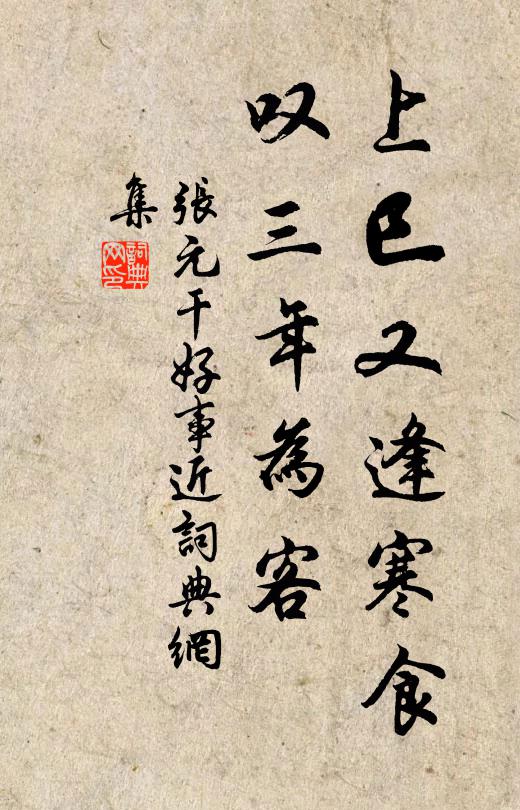 上巳又逢寒食
叹三年為客
張元干好事近詞典網
集
詞典
网印